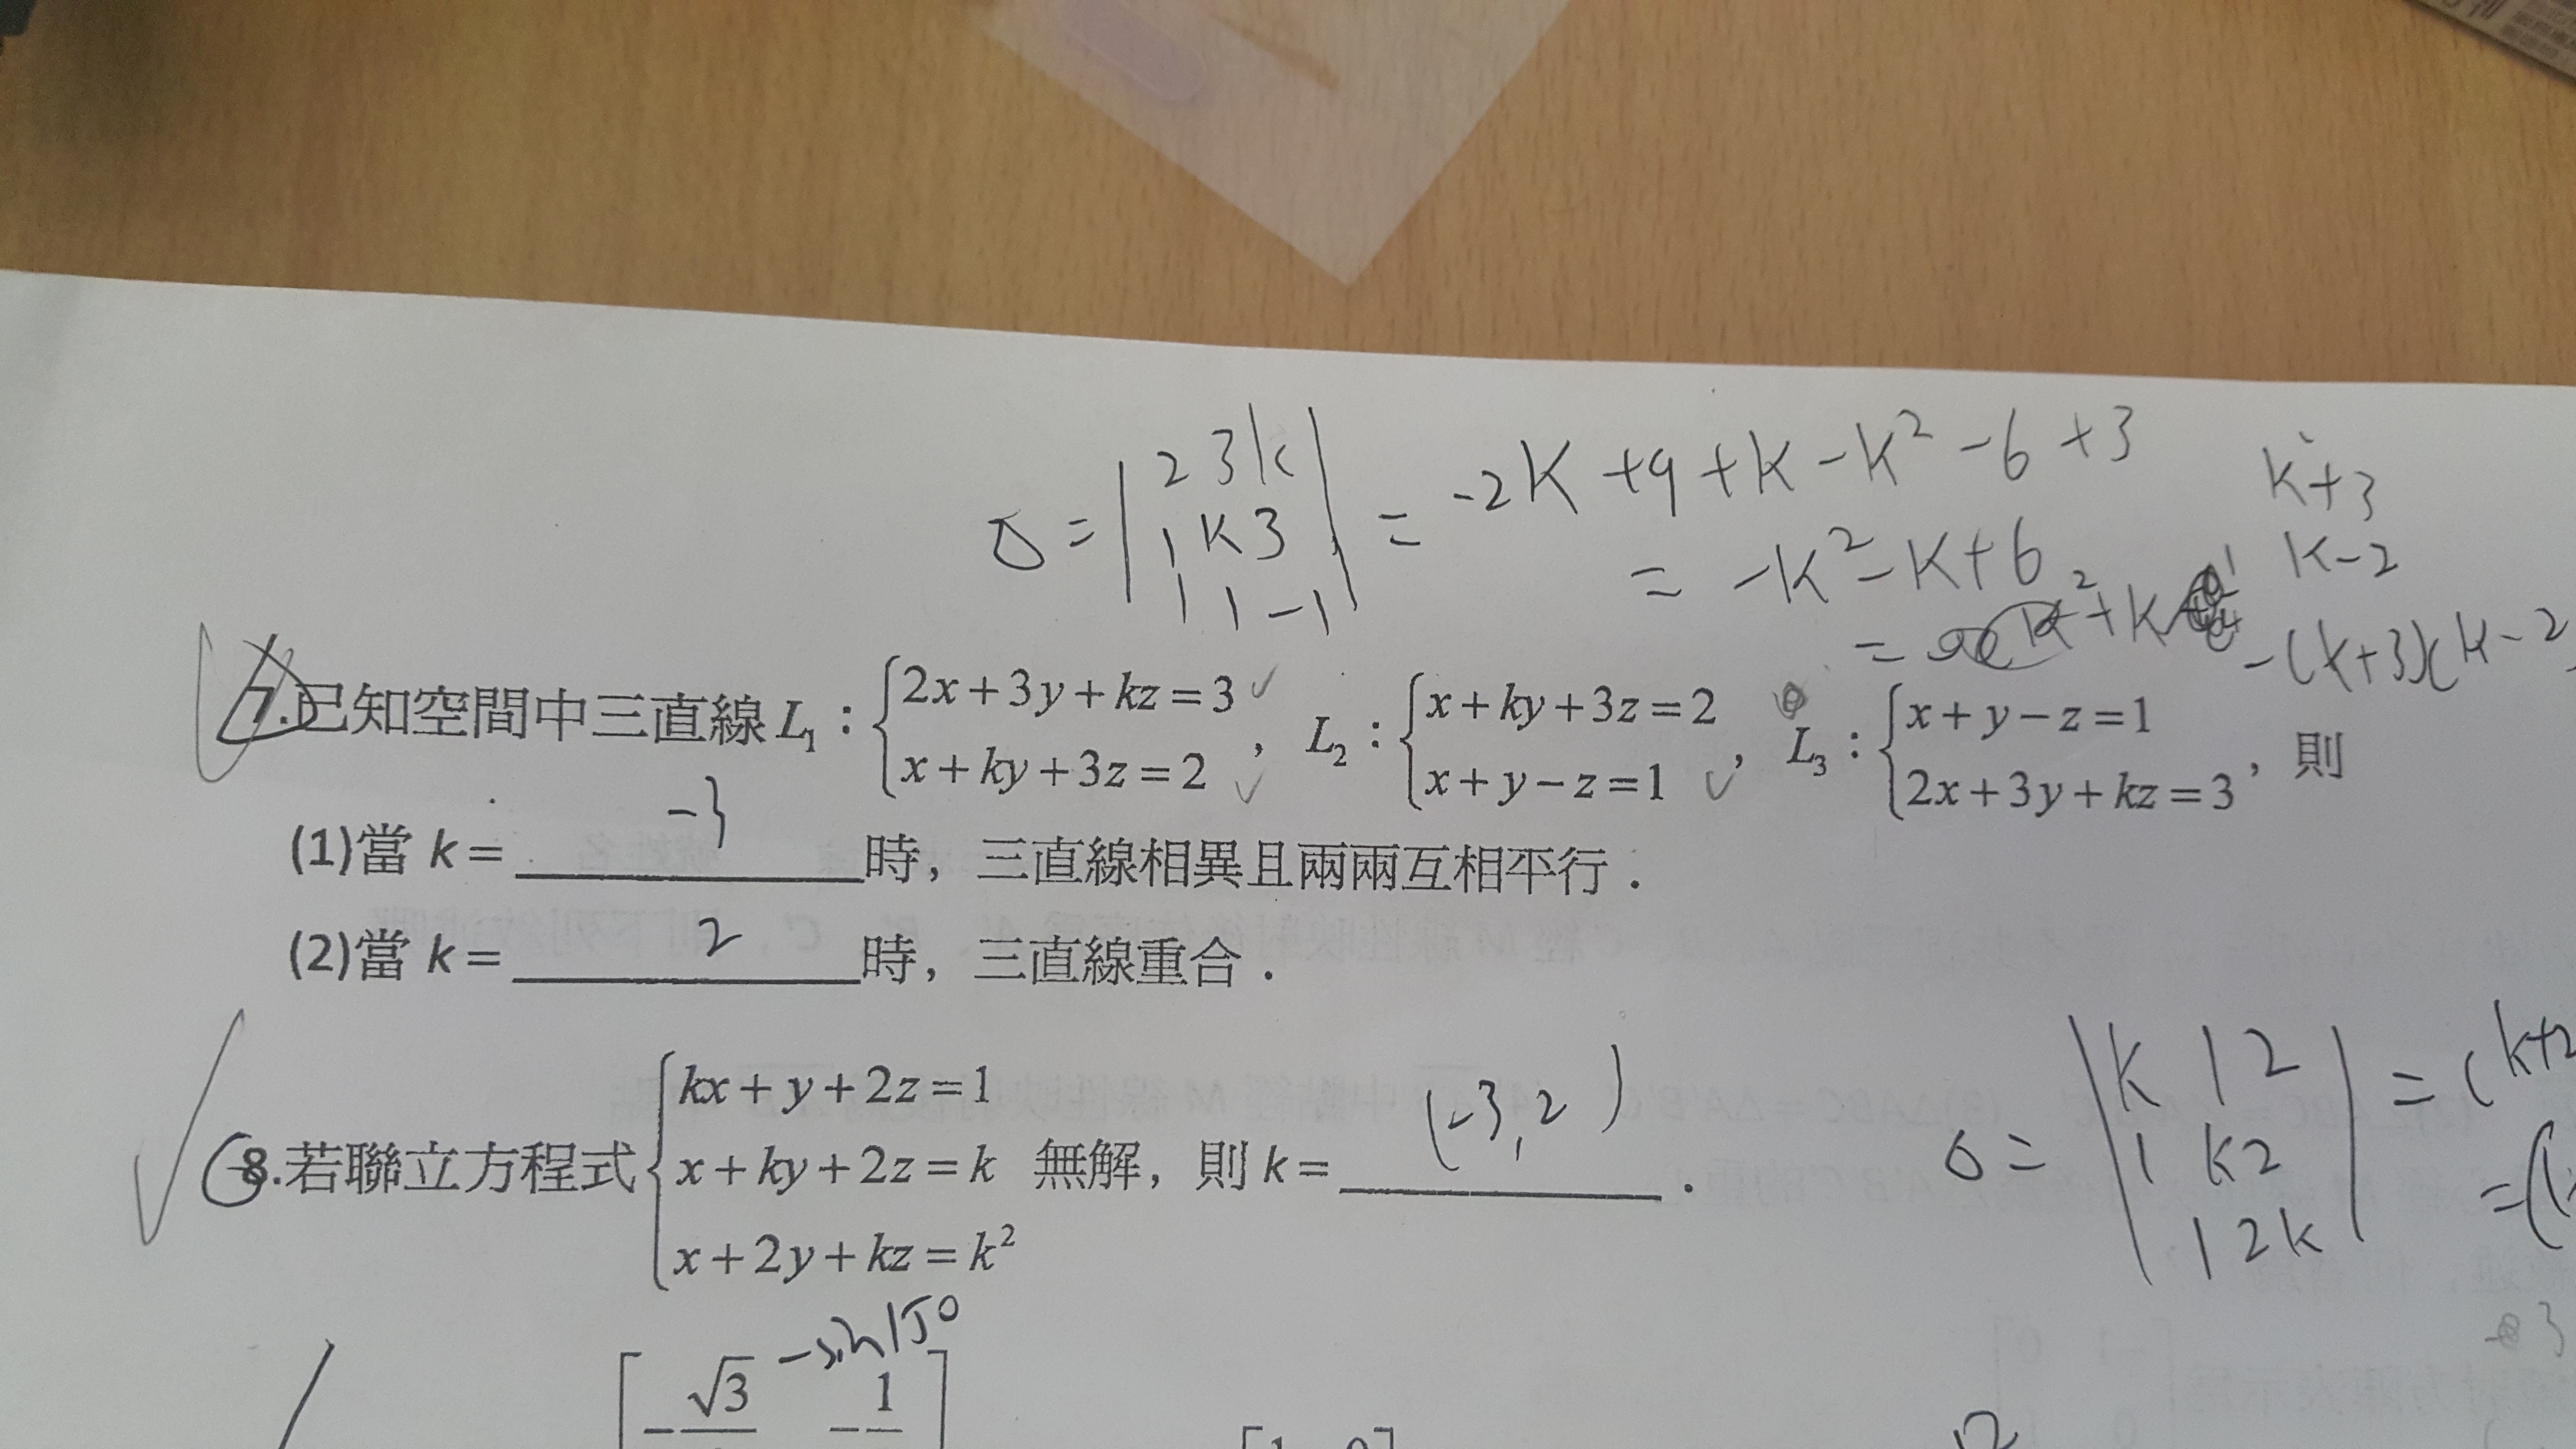 0 = | 2 3 k | = -2K + 9 + K - K² - 6 + 3
| 1 K 3 | = -K² - K + 6
| 1 1 -1 |
K + 3
K - 2
-(k+3)(k-2
7.已知空間中三直線 L₁：{2x+3y+kz=3, x+ky+3z=2，L₂：{x+ky+3z=2, x+y−z=1，L₃：{x+y−z=1, 2x+3y+kz=3，則
(1)當 k = -3 時，三直線相異且兩兩互相平行．
(2)當 k = 2 時，三直線重合．
8.若聯立方程式{kx+y+2z=1, x+ky+2z=k, x+2y+kz=k² 無解，則 k = (-3, 2) ．
0 = | k 1 2 | = (k+2
| 1 k 2 | = (
| 1 2 k |
-sin150
−√3 −1